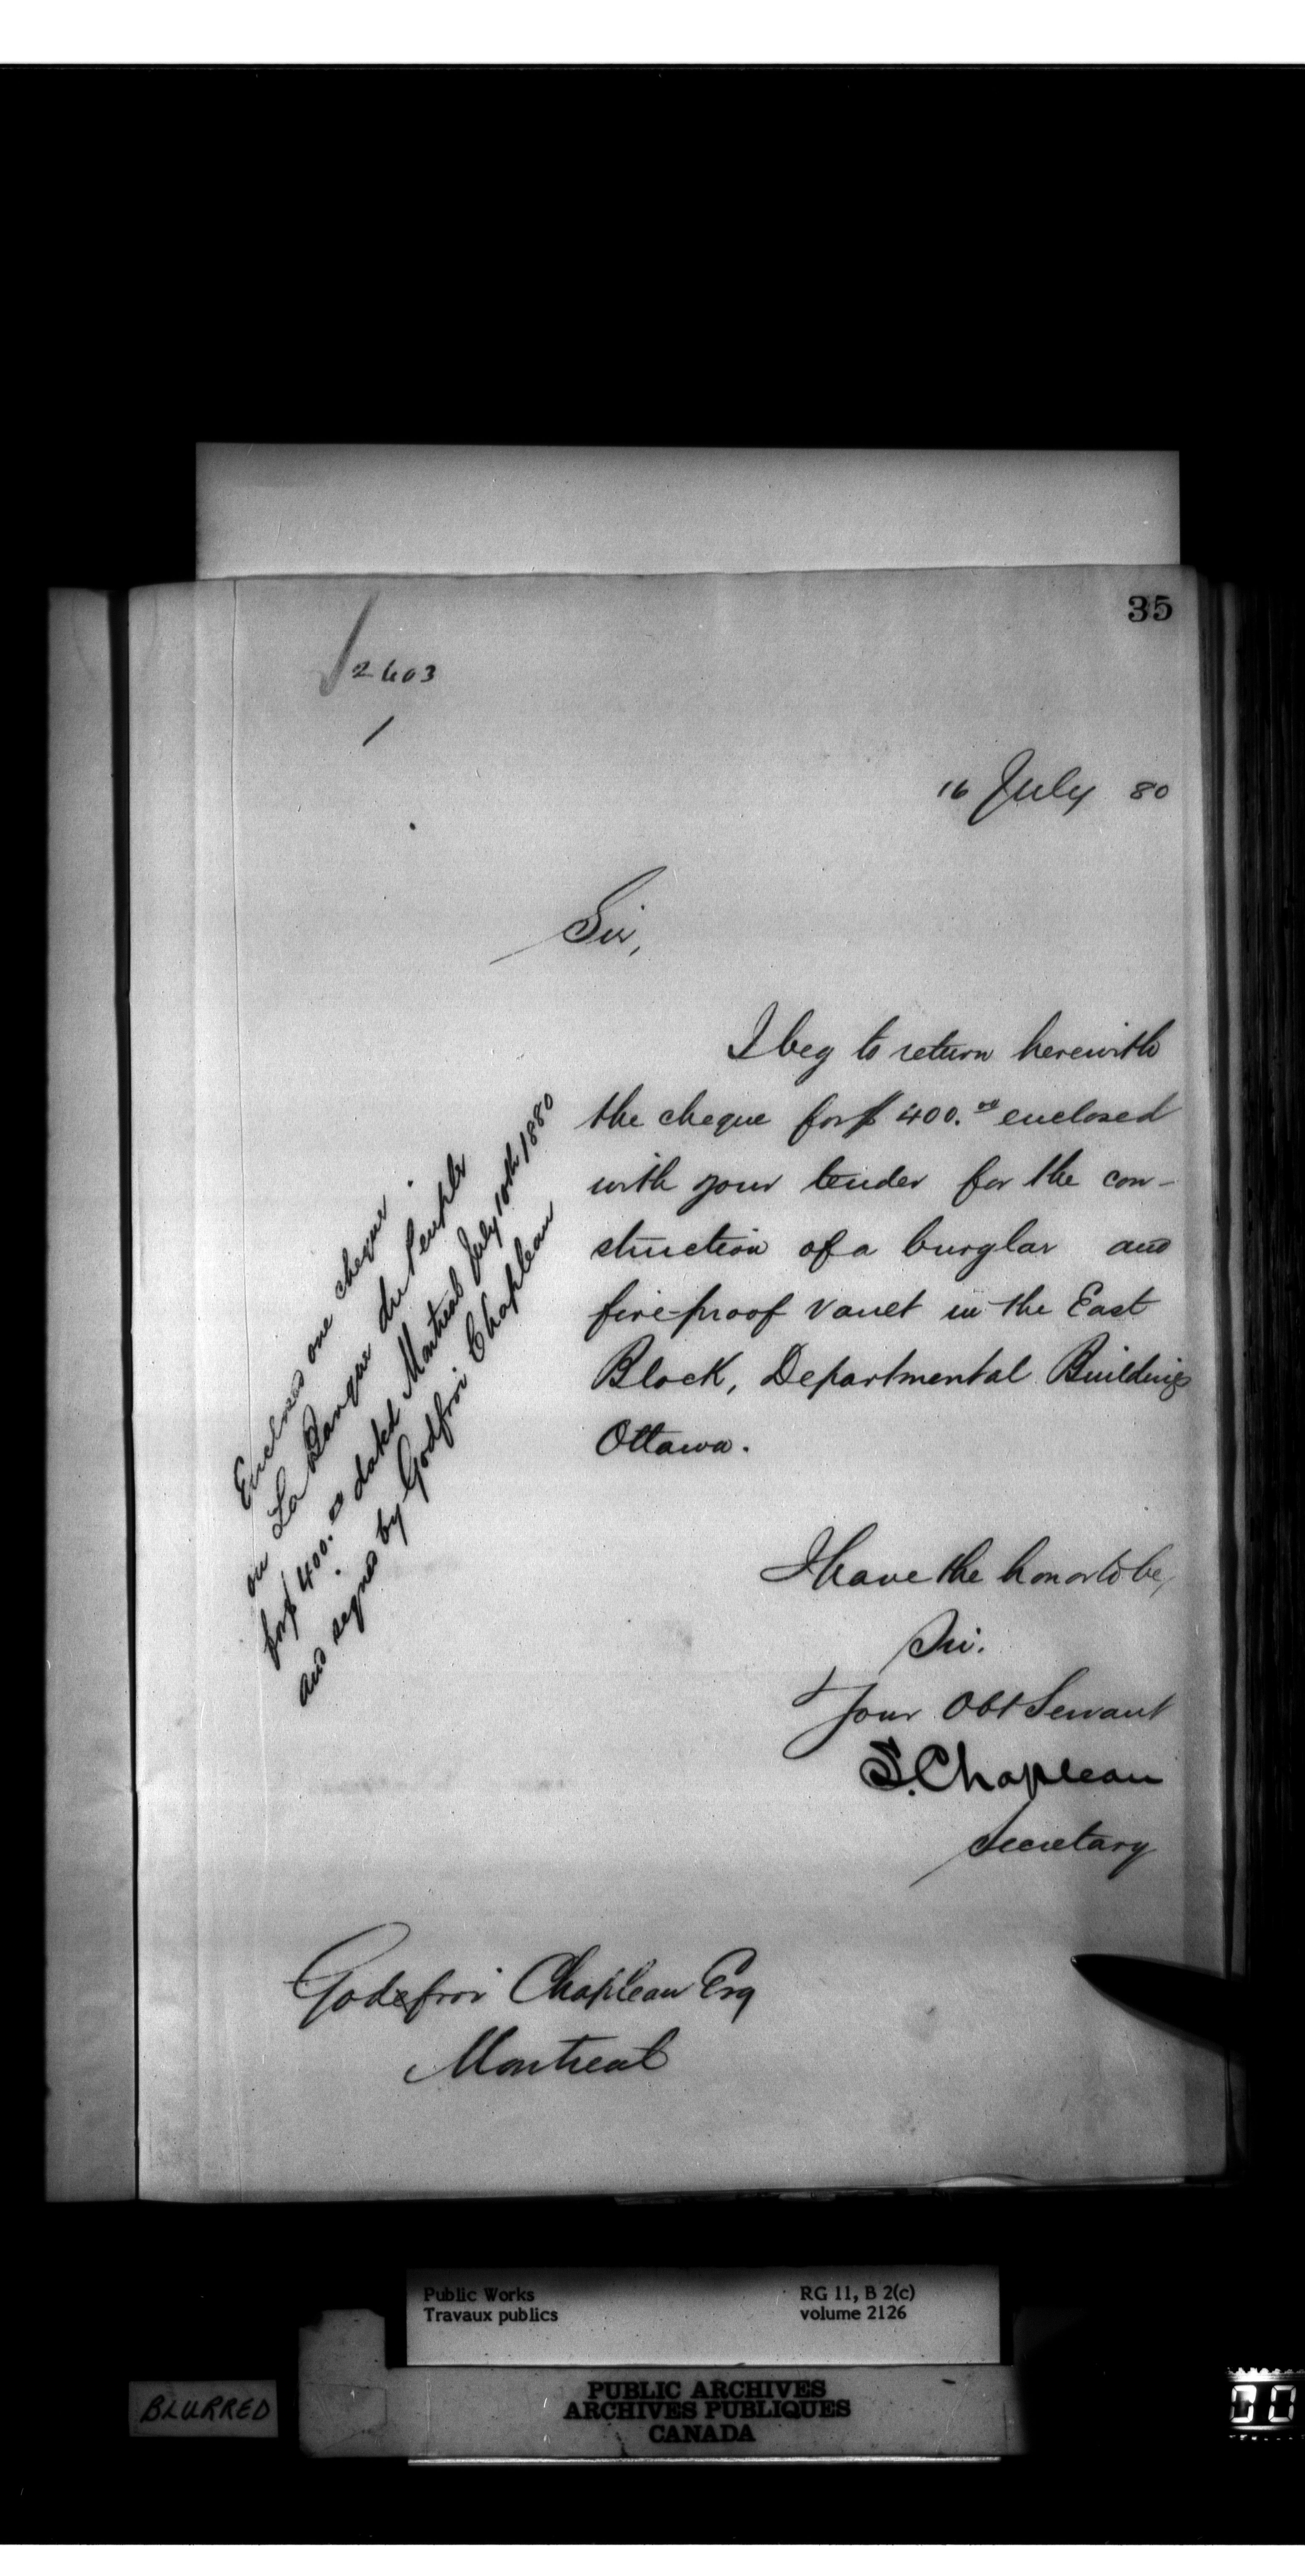 35
2603
1
16 July 80
Sir,
I beg to return herewith
the cheque for $400.00 enclosed
with your tender for the con-
struction of a burglar and
fire-proof vault in the East
Block, Departmental Buildings
Ottawa.
Encloses one cheque
on La Banque du Peuple
for $400.00 dated Montreal July 10th 1880
and signed by Godfroi Chapleau
I have the honor to be,
Sir.
Your Obt Servant
S. Chapleau
Secretary
Godefroi Chapleau Esq
Montreal
Public Works RG 11, B 2(c)
Travaux publics volume 2126
PUBLIC ARCHIVES
ARCHIVES PUBLIQUES
CANADA
BLURRED
00